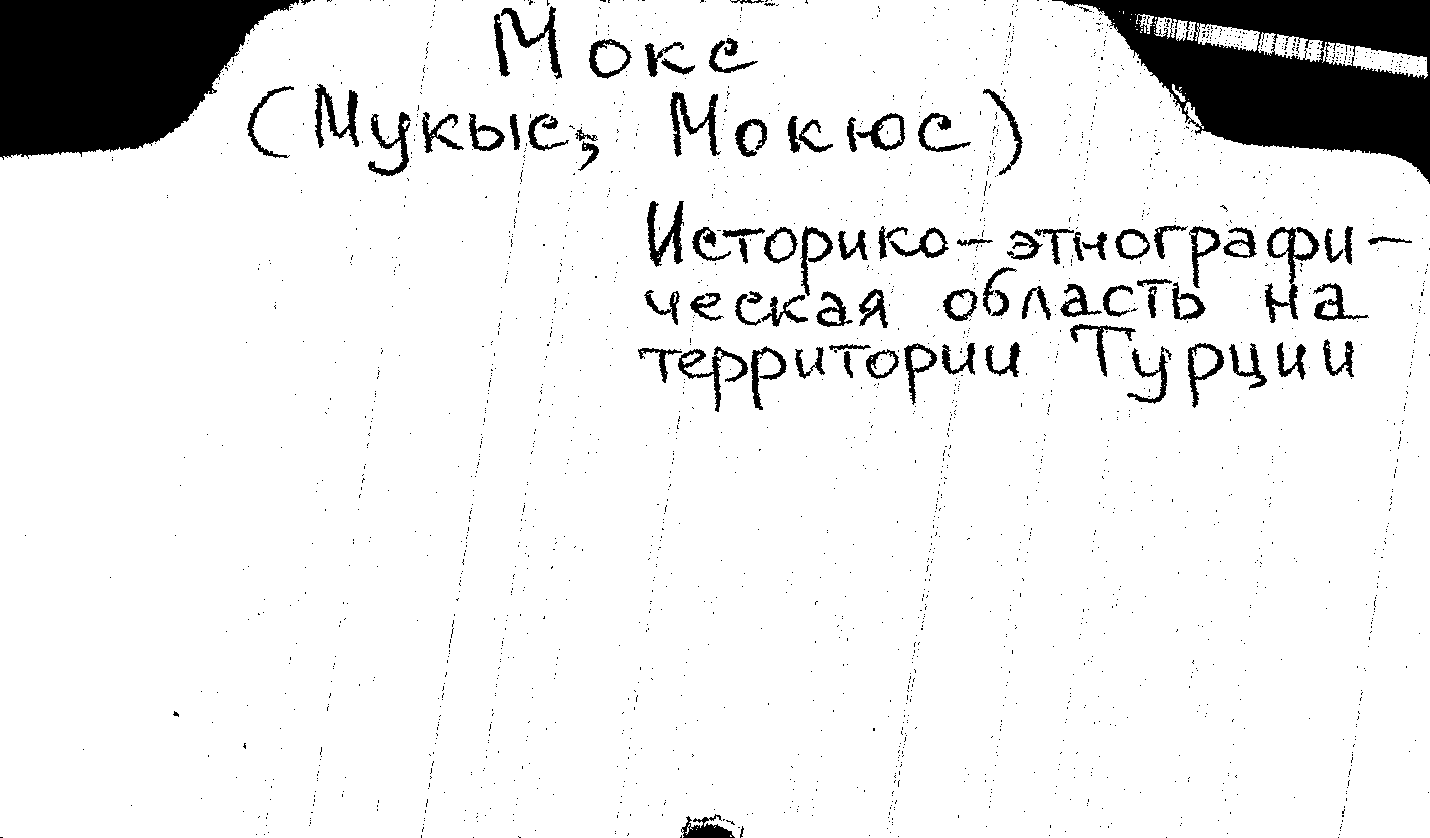 Мокс
(Мукыс, Мокюс)
Историко-этнографи-
ческая область на
территории Турции